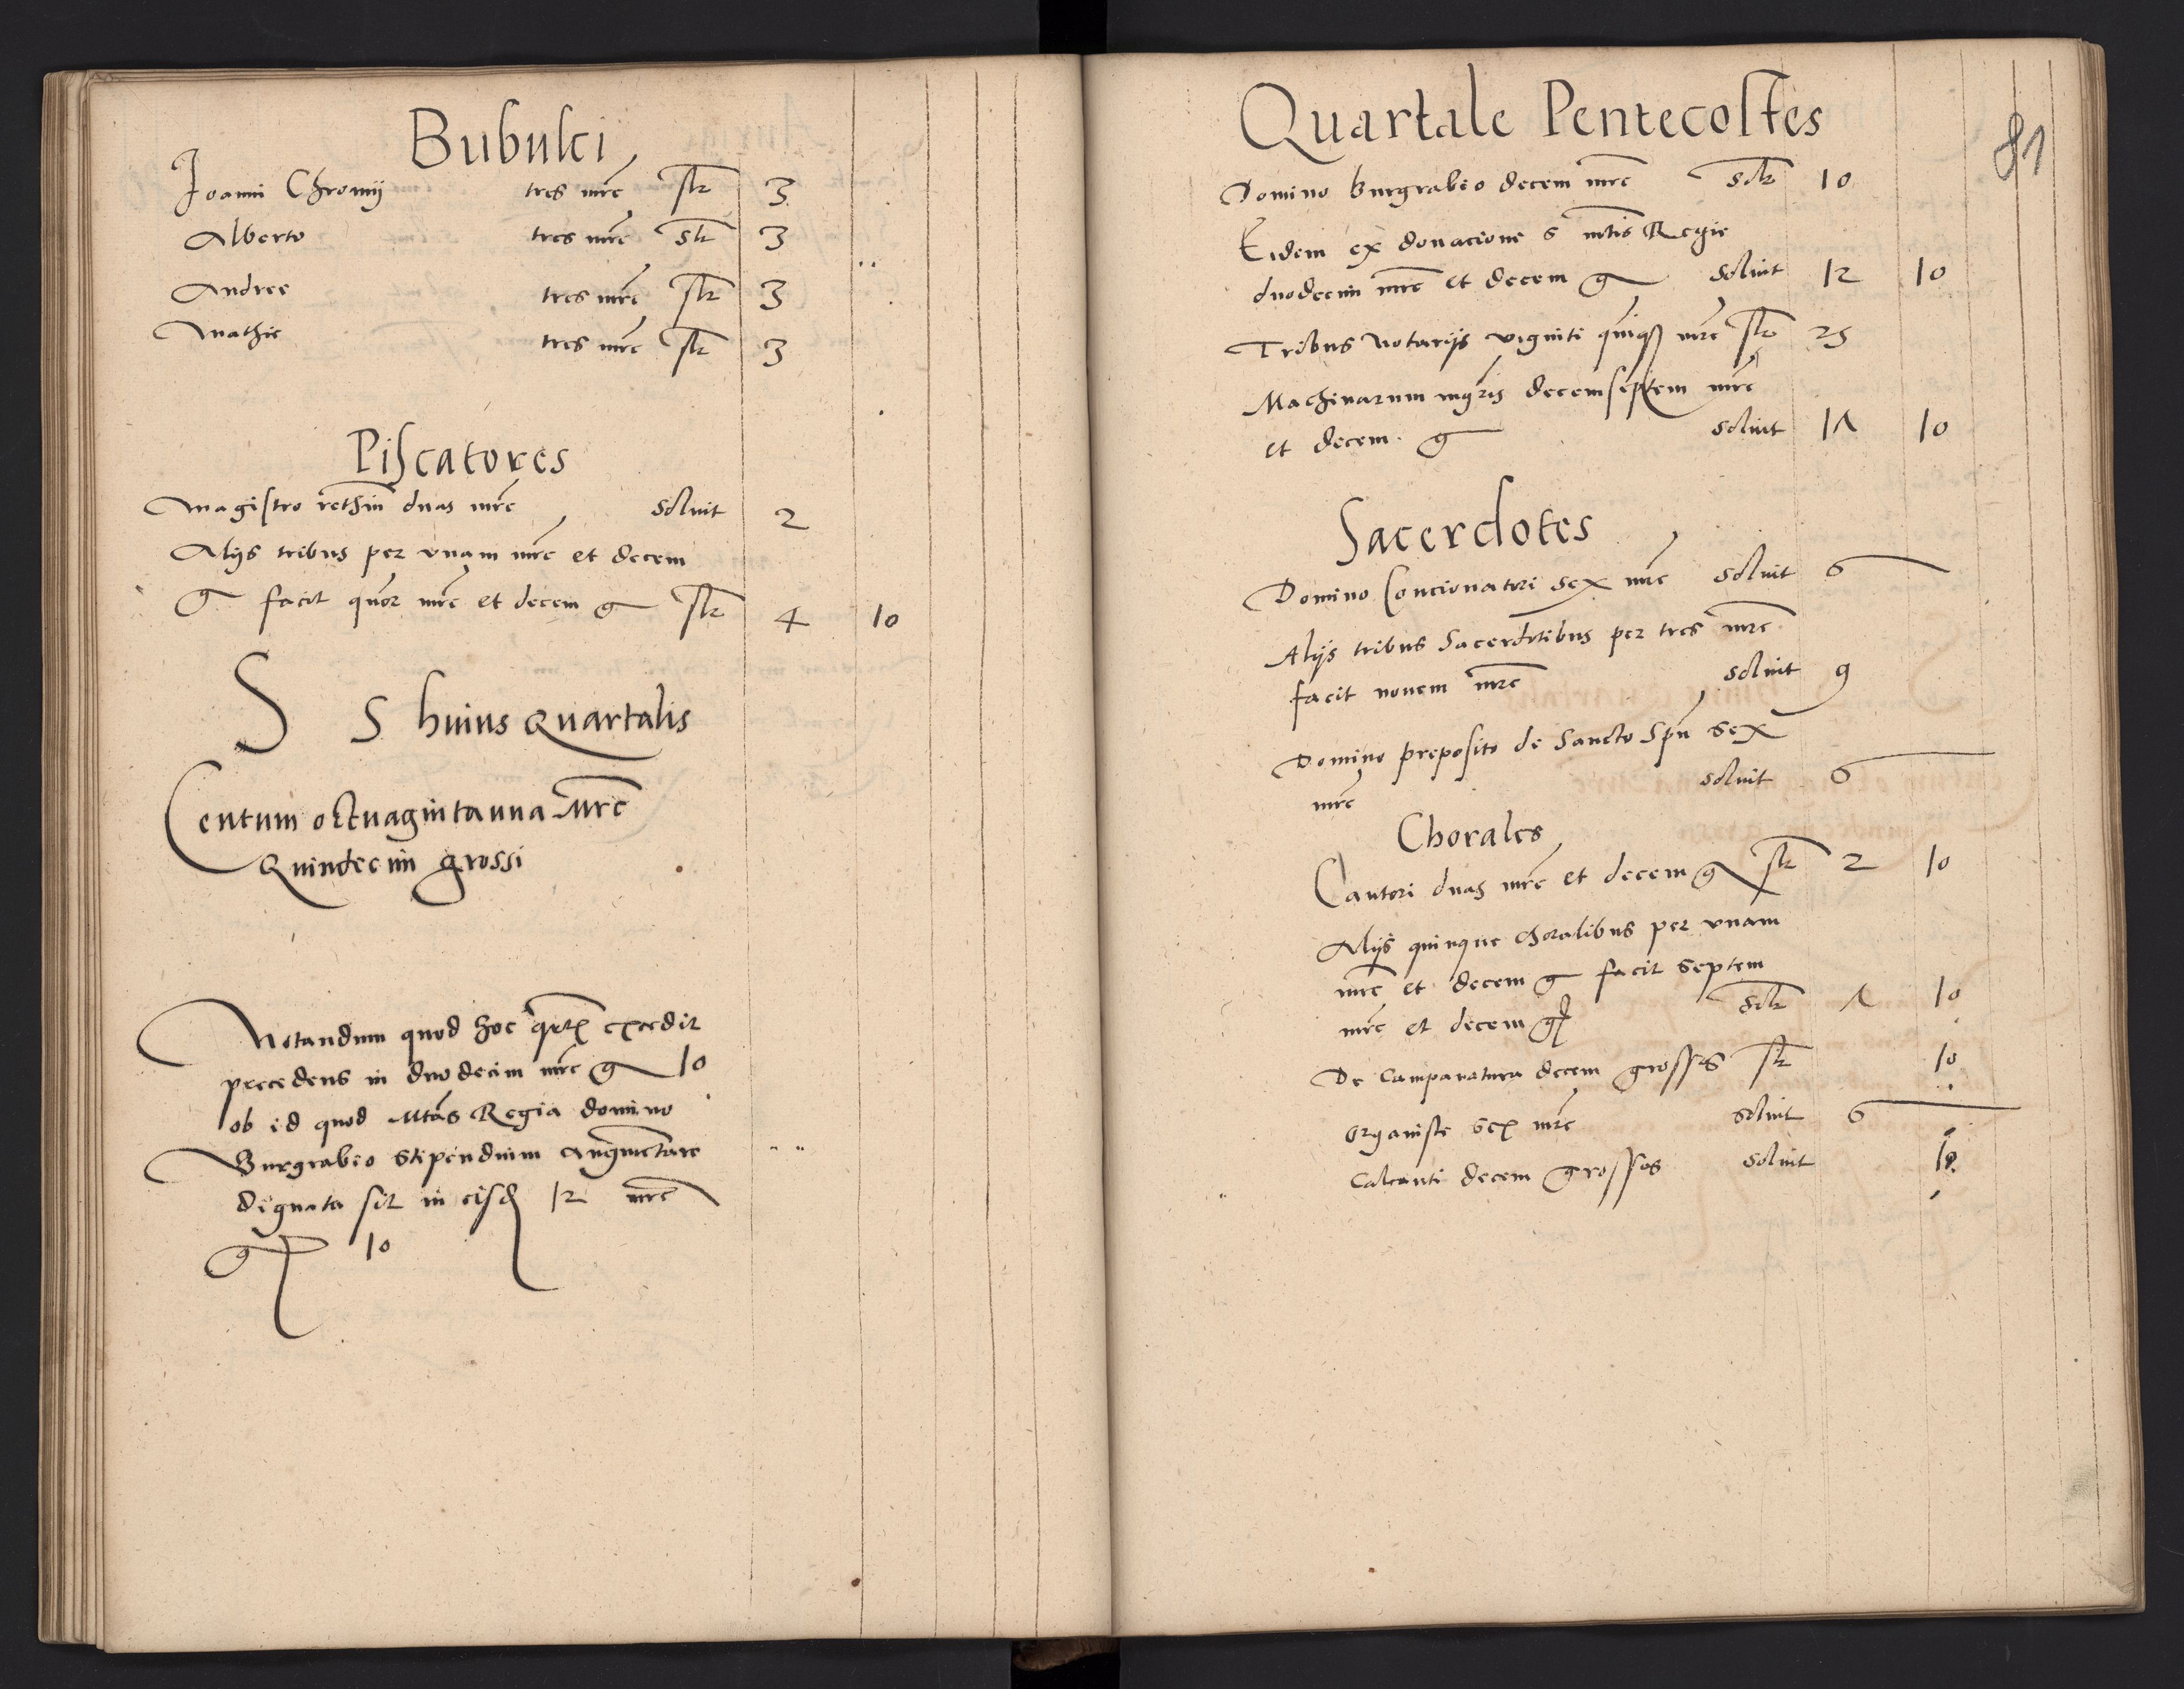 Bubulci
Joanni Chromij tres mrc slr 3
Alberto tres mrc slr 3
Andree tres mrc slr 3
Mathie tres mrc slr 3
Piscatores
Magistro rethin duas mrc soluit 2
Alijs tribus per vnam mrc et decem
g facit quor mrc et decem g slr 4 10
S S huius Quartalis
Centum octuaginta una Mrc
Quindecim grossi
Notandum quod hoc qrtl excedit
precedens in duodecim mrc g 10
ob id quod Mtas Regia domino
Burgrabio stipendium augmentare
dignata sit in eisd 12 mrc
g 10
Quartale Pentecostes
81
Domino burgrabio decem mrc solr 10
Eidem ex donacione S mtis Regie
duodecim mrc et decem g soluit 12 10
Tribus Notarijs viginti quinq mrc slr 25
Machinarum mgris decemseptem mrc
et decem g soluit 17 10
Sacerdotes
Domino Concionatori sex mrc soluit 6
Alijs tribus Sacerdotibus per tres mrc
facit nouem mrc soluit 9
Domino preposito de Sancto Spu sex
mrc soluit 6
Chorales
Cantori duas mrc et decem g slr 2 10
Alijs quinque choralibus per vnam
mrc et decem g facit septem
mrc et decem g solr 7 10
De Campanatura decem grosses slr 10
Organiste sex mrc soluit 6
Calcanti decem grosses soluit 10